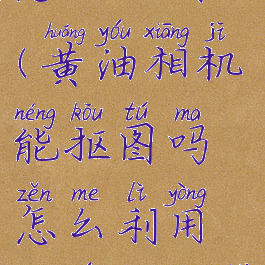 huáng yóu xiāng jī
(黄油相机
néng kōu tú ma
能抠图吗
zěn me lì yòng
怎么利用